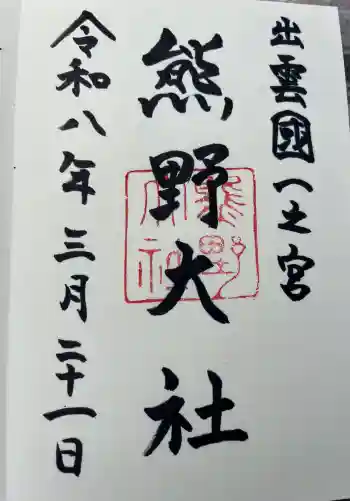 出雲國一之宮
熊野大社
令和八年三月二十一日
熊野
大社